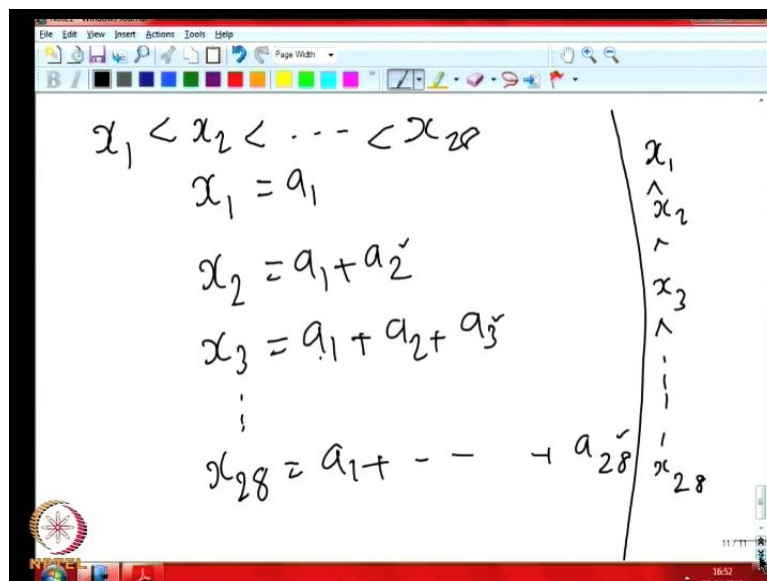 File Edit View Insert Actions Tools Help
Page Width
B I
x₁ < x₂ < --- < x₂₈
x₁ = a₁
x₂ = a₁ + a₂
x₃ = a₁ + a₂ + a₃
⋮
x₂₈ = a₁ + - - + a₂₈
x₁
^
x₂
^
x₃
^
⋮
x₂₈
11 / 11
NPTEL
16:52